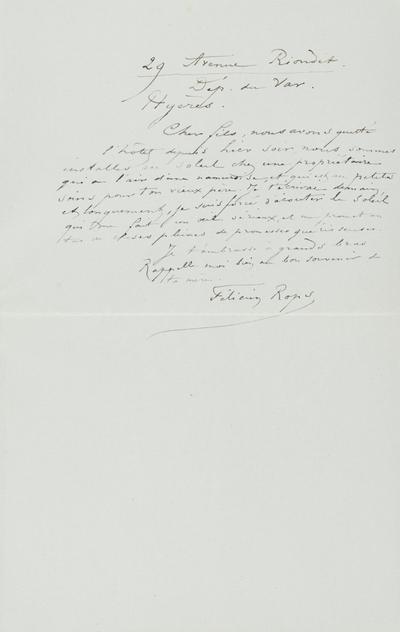 29 Avenue Riondet.
Dép. du Var.
Hyères.
Cher fils, nous avons quitté
l'hôtel depuis hier soir nous sommes
installés au soleil chez une propriétaire
qui a l'air d'une et qui est au petits
soins pour ton vieux père. Je t'écrirai demain
et longuement, je suis forcé d'aborder le soleil
qui me fait un œil sérieux, et un
tas de choses pleines de promesses guérisseuses.
Je t'embrasse à grands bras
Rappelle moi bien au bon souvenir de
ta mère.
Félicien Rops